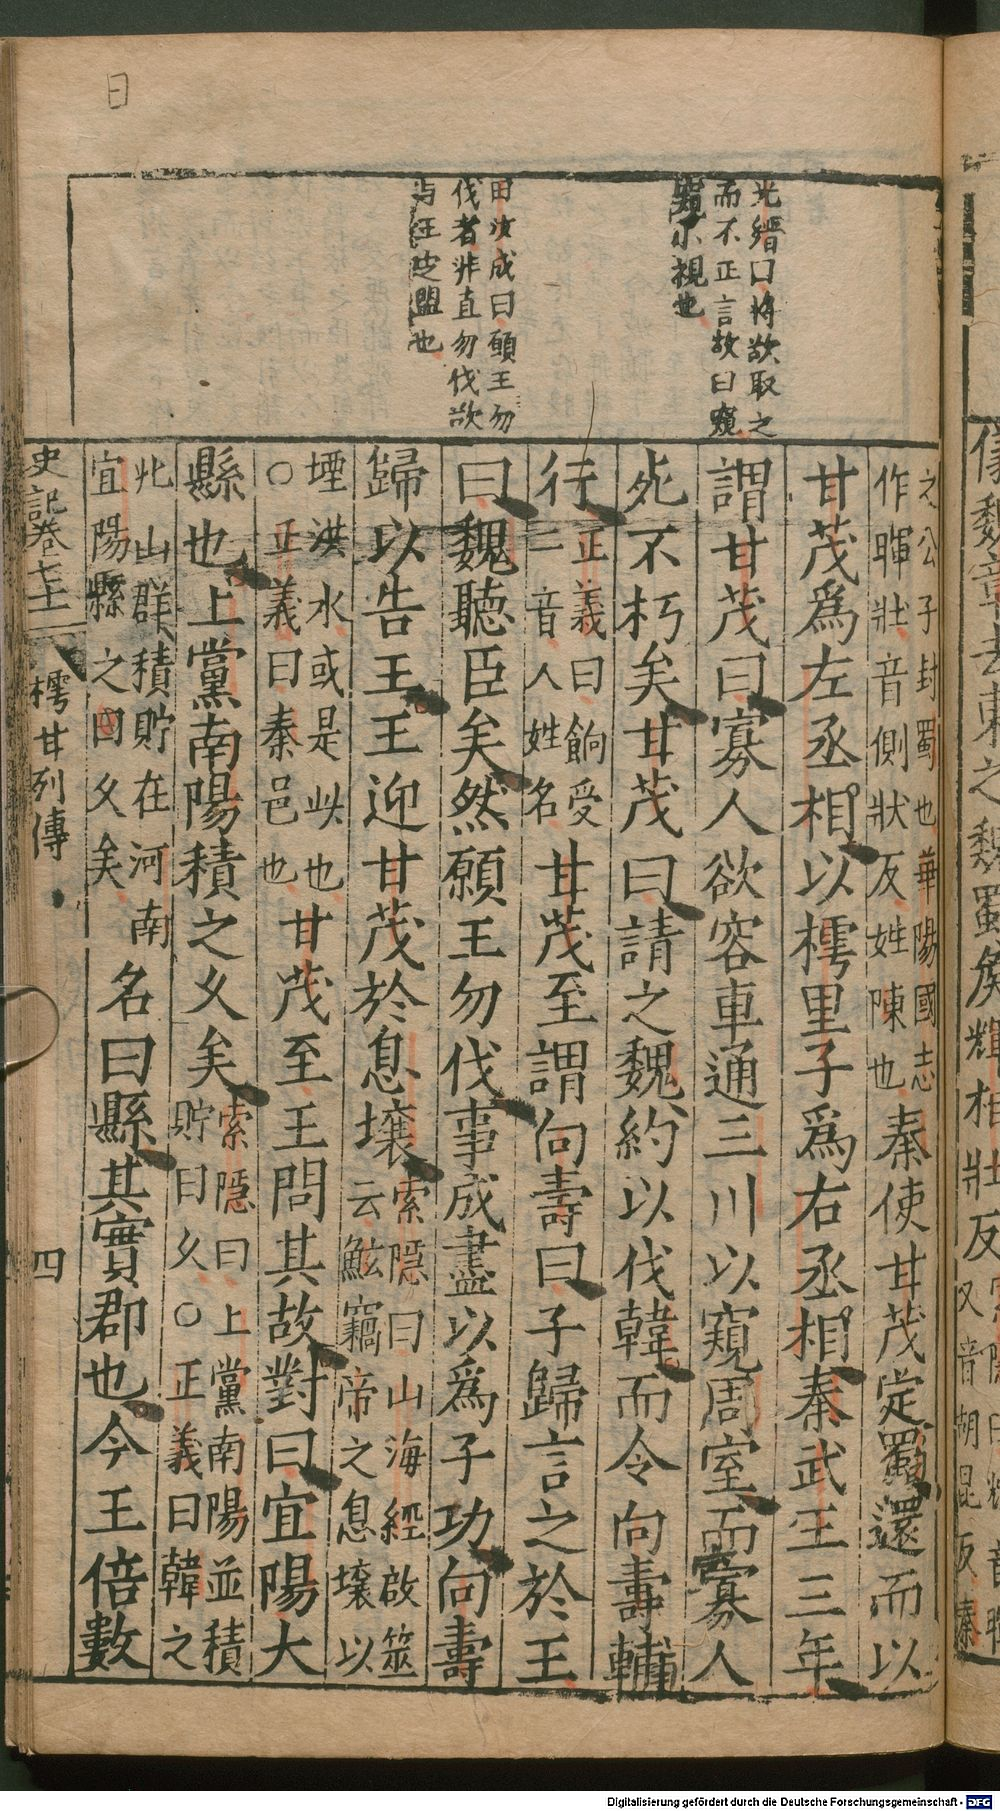 光縉曰將欲取之
而不正言故曰窺
窺小視也
田汝成曰願王勿
伐者非直勿伐欲
与王定盟也
之公子封蜀也華陽國志
作暉壯音側狀反姓陳也
秦使甘茂定蜀還而以
甘茂爲左丞相以樗里子爲右丞相秦武王三年
謂甘茂曰寡人欲容車通三川以窺周室而寡人
死不朽矣甘茂曰請之魏約以伐韓而令向壽輔
行
正義曰餉受
二音人姓名
甘茂至謂向壽曰子歸言之於王
曰魏聽臣矣然願王勿伐事成盡以爲子功向壽
歸以告王王迎甘茂於息壤
索隱曰山海經啟筮
云鮌竊帝之息壤以
堙洪水或是此也
○正義曰秦邑也
甘茂至王問其故對曰宜陽大
縣也上黨南陽積之久矣
索隱曰上黨南陽並積
貯曰久○正義曰韓之
北山群積貯在河南
宜陽縣之日久矣
名曰縣其實郡也今王倍數
史記卷七十一 樗甘列傳 四
Digitalisierung gefördert durch die Deutsche Forschungsgemeinschaft - DFG